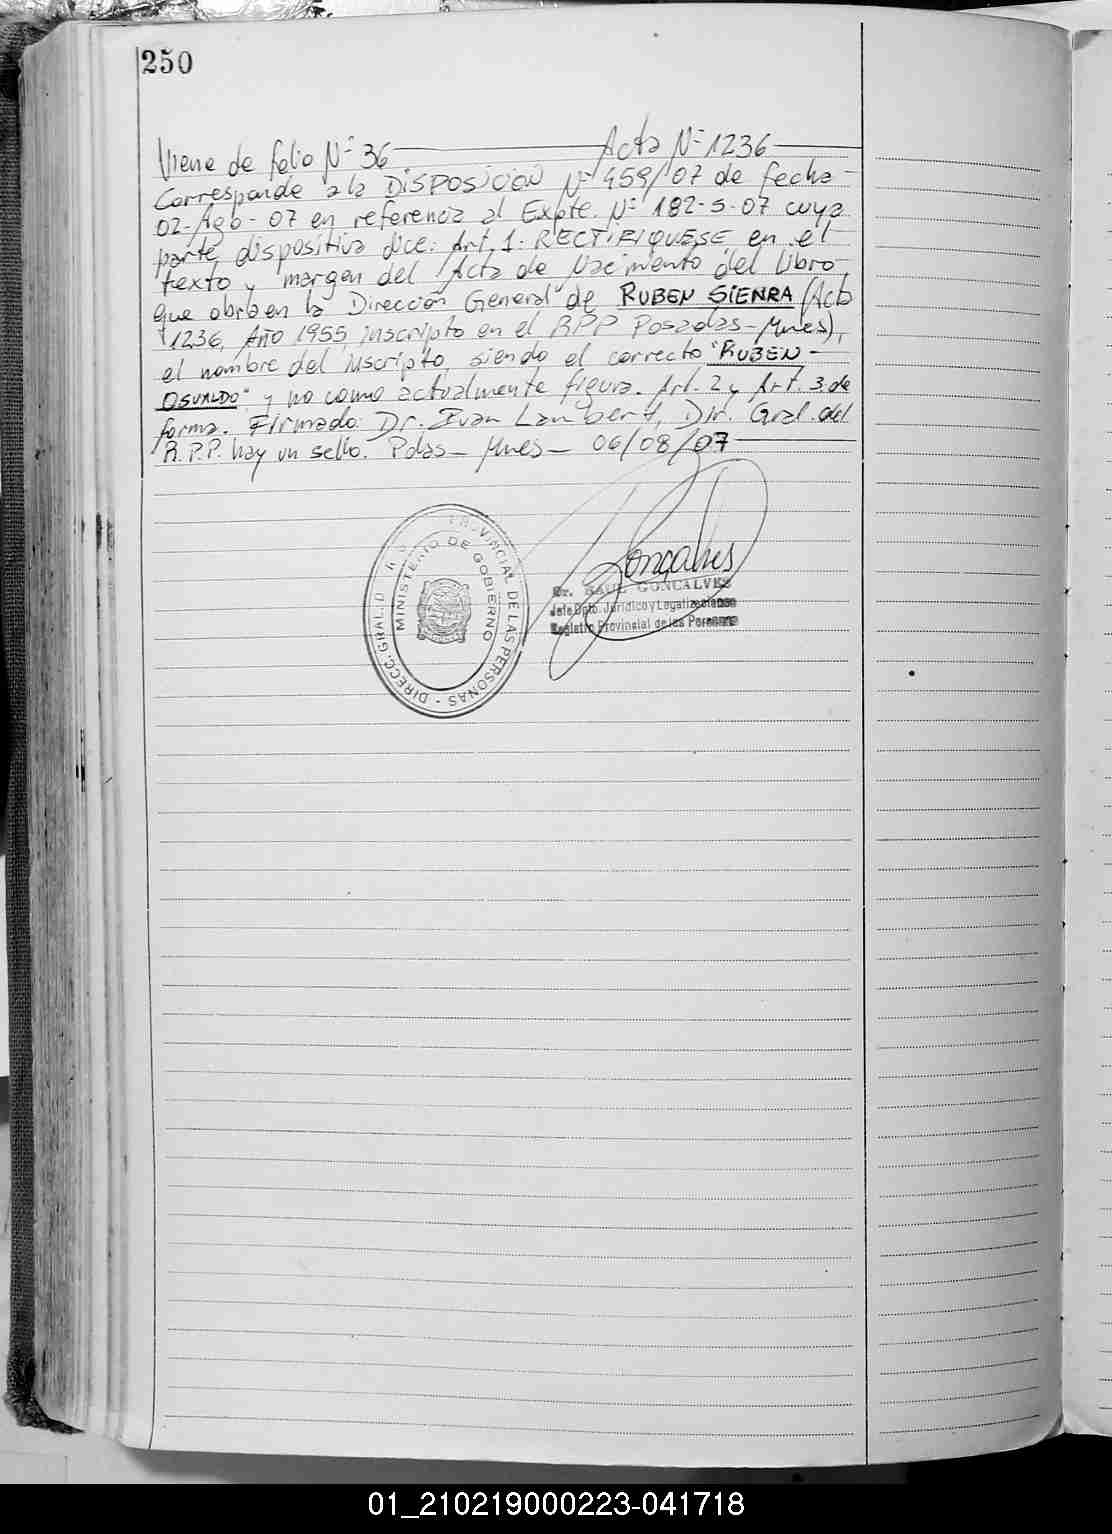 250
Viene de folio Nº 36 Acta Nº 1236
Corresponde a la DISPOSICION Nº 459/07 de fecha
02-Ago-07 en referencia al Expte. Nº 182-S-07 cuya
parte dispositiva dice: Art. 1: RECTIFIQUESE en el
texto y margen del Acta de Nacimiento del Libro
que obra en la Dirección General de RUBEN SIENRA (Acta
1236, Año 1955, inscripto en el RPP Posadas-Mnes),
el nombre del inscripto, siendo el correcto "RUBEN
OSVALDO" y no como actualmente figura. Art. 2 y Art. 3 de
forma. Firmado: Dr. Ivan Lambert, Dir. Gral. del
R.P.P. hay un sello. Pdas- Mnes- 06/08/07
DIRECC. GRAL. D PROVINCIAL DE LAS PERSONAS -
MINISTERIO DE GOBIERNO
Goncalves
Dr. RAUL GONCALVES
Jefe Dpto. Jurídico y Legalizaciones
Registro Provincial de las Personas
01_210219000223-041718